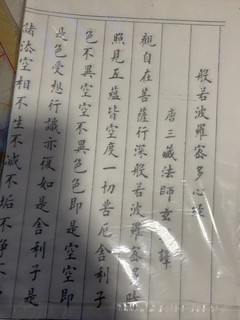 般若波羅蜜多心經
唐三藏法師玄 譯
觀自在菩薩行深般若波羅蜜多時
照見五蘊皆空度一切苦厄舍利子
色不異空空不異色色即是空空即
是色受想行識亦復如是舍利子是
諸法空相不生不滅不垢不淨不